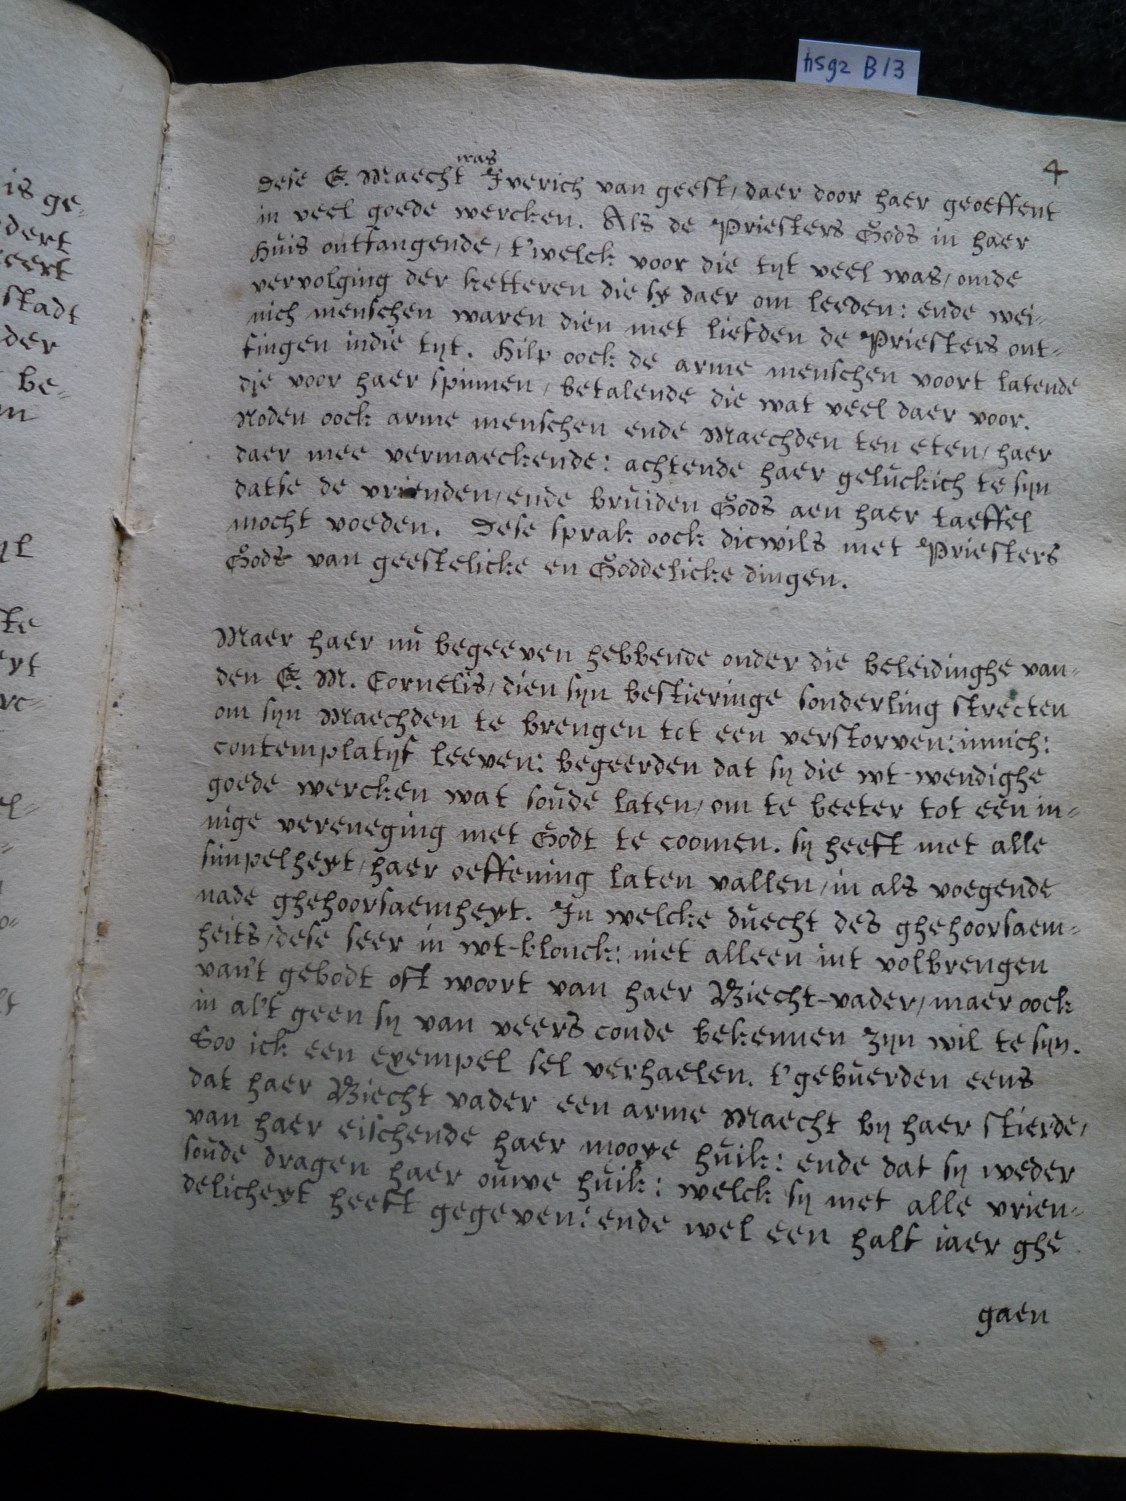 hsg2 B13
4
was
Dese E. Maecht Iverich van geest/ daer door haer geoeffent
in veel goede wercken. Als de Priesters Gods in haer
huis ontfangende/ t'welck voor die tyt veel was/ omde
vervolging der ketteren die sy daer om leeden: ende wei-
nich menschen waren dien met liefden de Priesters ont-
fingen indie tyt. Hilp oock de arme menschen voort latende
die voor haer spinnen/ betalende die wat veel daer voor.
Noden oock arme menschen ende Maechden ten eten/ haer
daer mee vermaeckende: achtende haer geluckich te syn
datse de vrienden/ ende bruiden Gods aen haer taeffel
mocht voeden. Dese sprak oock dicwils met Priesters
Gods van geestelicke en Goddelicke dingen.
Maer haer nu begeeven hebbende onder die beleidinghe van-
den E. M. Cornelis/ dien syn bestieringe sonderling strecten
om syn Maechden te brengen tot een verstorven: innich:
contemplatyf leeven: begeerden dat sy die wt-wendighe
goede wercken wat soude laten/ om te beeter tot een in-
nige vereneging met Godt te coomen. sy heeft met alle
simpelheyt/ haer oeffening laten vallen/ in als voegende
nade ghehoorsaemheyt. In welcke duecht des ghehoorsaem-
heits/ dese seer in wt-blonck: niet alleen int volbrengen
van't gebodt oft woort van haer Biecht-vader/ maer oock
in al't geen sy van veers conde bekennen zyn wil te syn.
Soo ick een exempel sel verhaelen. t'gebuerden eens
dat haer Biecht vader een arme Maecht by haer stierde/
van haer eischende haer mooye huik: ende dat sy weder
soude dragen haer ouwe huik: welck sy met alle vrien-
delicheyt heeft gegeven: ende wel een half iaer ghe
gaen
is ge-
dert
eert
stadt
der
be-